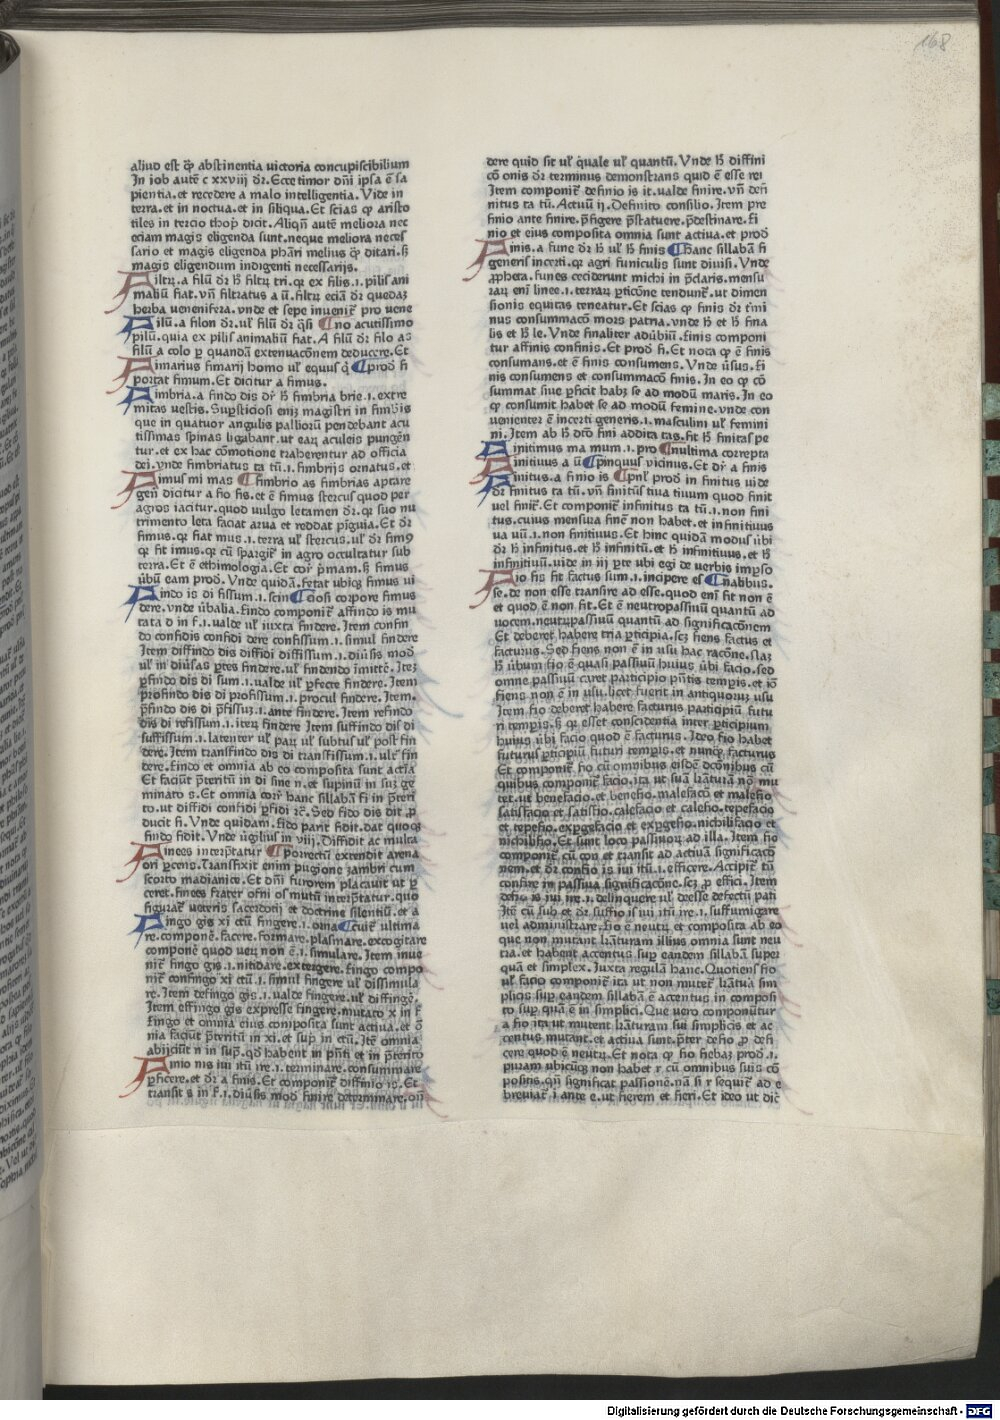 168
aliud est qͥ abstinentia uictoria concupiscibilium
In iob autē c xxviij dꝛ. Ecce timor dñi ipsa ē sa
pientia. et recedere a malo intelligentia. Vide in
terra. et in noctua. et in siliqua. Et scias ꝙ aristo
tiles in tercio thop̄ dicit. Aliqñ autē meliora nec
eciam magis eligenda sunt. neque meliora neces
sario et magis eligenda phāri melius ꝙ ditari. ꝭ
magis eligendum indigenti necessarijs.
Filtꝝ. a filū dꝛ ħ filtꝝ tri. qꝛ ex filis .i. pilis ani
maliū fiat. vñ filtratus a ū. filtꝝ eciā dꝛ quedaʒ
herba venenifera. vnde et sepe inuenit᷑ pro uene
Filū. a filon dꝛ. ul᷑ filū dꝛ q̄si ¶ no acutissimo
pilū. quia ex pilis animaliū fiat. A filū dꝛ filo as
filū a colo ꝑ quandā extenuacōnem deducere. Et
Fimarius fimarij homo ul᷑ equus q̄ ¶ prod᷑ fi
portat fimum. Et dicitur a fimus.
Fimbria. a findo dis dꝛ ħ fimbria brie .i. extre
mitas uestis. Sup̱sticiosi eniʒ magistri in fimbꝛis
que in quatuor angulis palliorū pendebant acu
tissimas spinas ligabant. ut eaꝝ aculeis pungen
tur. et ex hac cōmotione traherentur ad officia
dei. vnde fimbriatus ta tū .i. fimbrijs ornatus. et
Fimus mi mas ¶ fimbrio as fimbrias aptare
gen̄ dicitur a fio fis. et ē fimus stercus quod per
agros iacitur. quod vulgo letamen dꝛ. qꝛ suo nu
trimento leta faciat arua et reddat pīguia. Et dꝛ
fimus. qꝛ fiat mus .i. terra ul᷑ stercus. ul᷑ dꝛ fimꝰ
qꝛ fit imus. qꝛ cū spargit᷑ in agro occultatur sub
terra. Et ē ethimologia. Et coꝛ᷑ p̄mam. ꝭ fimus
ūbū eam prod᷑. Vnde quidā. fetat ubiqꝫ fimus ui
Findo is di fissum .i. scin ¶ ciosi corpore fimus
dere. vnde ūbalia. findo componit᷑ affindo is mu
tata d in f. i. valde ul᷑ iuxta findere. Item confin
do confidis confidi dere confissum .i. simul findere
Item diffindo dis diffidi diffissum .i. diūsis mod᷑
ul᷑ in diūsas ꝑtes findere. ul᷑ findendo īmittē. Iteʒ
ꝑfindo dis di sum .i. ualde ul᷑ ꝑfecte findere. Item
profindo dis di profissum .i. procul findere. Item.
p̄findo dis di p̄fissuʒ .i. ante findere. Item refindo
dis di refissum .i. iteꝝ findere Item suffindo dis di
suffissum .i. latenter ul᷑ paꝝ ul᷑ subtus ul᷑ post fin
dere. Item transfindo dis di transfissum .i. ult᷑ fin
dere. findo et omnia ab eo composita sunt actīa
Et faciūt p̄teritū in di sine n. et supinū in suʒ ge
minato s. Et omnia coꝛ᷑ hanc sillabā fi in p̄teri
to. ut diffidi confidi ꝑfidi ꝛc̄. Sed fido dis dit ꝓ
ducit fi. Vnde quidam. fido parit fidit. dat quoqꝫ
findo fidit. Vnde ūgilius in viij. Diffidit ac multa
Finees interp̄tatur ¶ porrectū extendit arena
ori ꝑcens. Transfixit enim pugione zambri cum
scorto madianice. Et dñi furorem placauit ut ꝑ
ceret. finees frater ofni os mutū interp̄tatur. quo
figurat᷑ ueteris sacerdotij et doctrine silentiū. et a
Fingo gis xi ctū fingere .i. oīna ¶ cuit᷑ ultima
re. componē. facere. formare. plasmare. excogitare
componē quod ueꝝ non ē .i. simulare. Item inue
nit᷑ fingo gis .i. nitidare. extergere. fingo compo
nit᷑ confingo xi ctū .i. simul fingere ul᷑ dissimula
re. Item defingo gis .i. ualde fingere. ul᷑ diffingē.
Item effingo gis expresse fingere. mutato x in f
fingo et omnia eius composita sunt actiua. et ō
nia faciūt p̄teritū in xi. et sup̄ in ctū. Itē omnia
abijciūt n in sup̄. qd᷑ habent in p̄nti et in p̄terito
Finio nis iui itū ire .i. terminare. consummare
ꝑficere. et dꝛ a finis. Et componit᷑ diffinio is. Et
transit s in f. i. diūsis mod᷑ finire determinare. oñ
dere quid sit ul᷑ quale ul᷑ quantū. Vnde ħ diffini
cō onis dꝛ terminus demonstrans quid ē esse rei
Item componit᷑ definio is it. ualde finire. vñ defi
nitus ta tū. Actuū ij. Definito consilio. Item pre
finio ante finire. p̄figere p̄statuere. p̄destinare. fi
nio et eius composita omnia sunt actiua. et prod᷑
Finis. a fune dꝛ ħ ul᷑ ħ finis ¶ hanc sillabā fi
generis incerti. qꝛ agri funiculis sunt diuisi. Vnde
ꝓpheta. funes ceciderunt michi in p̄claris. mensu
raꝝ enī linee .i. terraꝝ ꝑticōne tendunt᷑. ut dimen
sionis equitas teneatur. Et scias ꝙ finis dꝛ t̄mi
nus consummacō mors patria. vnde ħ et ħ fina
lis et ħ le. Vnde finaliter adūbiū. finis componi
tur affinis confinis. Et prod᷑ fi. Et nota ꝙ ē finis
consumans. et ē finis consumens. Vnde ūsus. fi
nis consumens et consummacō finis. In eo ꝙ cō
summat siue ꝑficit habʒ se ad modū maris. In eo
ꝙ consumit habet se ad modū femine. vnde con
uenienter ē incerti generis .i. masculini ul᷑ femini
ni. Item ab ħ dc̄o fini addita tas. fit ħ finitas pe
Finitimus ma mum .i. pro ¶ nultima correpta
Finitiuus a ū ¶ pinquus vicinus. Et dꝛ a finis
Finitus. a finio is ¶ pnl᷑ prod᷑ in finitus uide
dꝛ finitus ta tū. vñ finitūs tiua tiuum quod finit
uel finit᷑. Et componit᷑ infinitus ta tū .i. non fini
tus. cuius mensura finē non habet. et infinitiuus
ua uū .i. non finitiuus. Et hinc quidā modus ūbi
dꝛ ħ infinitus. et ħ infinitū. et ħ infinitiuus. et ħ
infinitiuū. uide in iij ꝑte ubi egi de uerbis impso
Fio fis fit factus sum .i. incipere es ¶ nalibus.
se. de non esse transire ad esse. quod enī fit non ē
et quod ē non fit. Et ē neutropassiuū quantū ad
uocem. neutꝝpassiuū quantū ad significacōnem
Et deberet habere tria ꝑticipia. scʒ fiens factus et
facturus. Sed fiens non ē in usu hac racōne. sʒ
ħ ūbum fio ē quasi passiuū huius ūbi facio. sed
omne passiuū caret participio p̄ntis tempꝛis. et iō
fiens non ē in usu. licet fuerit in antiquoꝝ usu
Item fio deberet habere facturus participiū futu
ri tempꝛis. ꝭ qꝛ esset conscidentia inter ꝑticipium
huius ūbi facio quod ē facturus. Ideo fio habet
futurus ꝑticipiū futuri tempꝛis. et nunqꝫ facturus
Et componit᷑ fio cū omnibus eisdē dcōnibus cū
quibus componit᷑ facio. ita ut suā lr̄aturā nō mu
tet. ut benefacio. et benefio. malefacio et malefio
satisfacio et satisfio. calefacio et calefio. tepefacio
et tepefio. expgefacio et expgefio. nichilifacio et
nichilifio. Et sunt loco passiuoꝝ ad illa. Item fio
componit᷑ cū con et transit ad actiuā significacō
nem. et dꝛ confio is iui itū .i. efficere. Accipit᷑ tn̄
confire in passiua significacōne. scʒ ꝓ effici. Item
defio is iui ire .i. delinquere ul᷑ deesse defectū pati
Itē cū sub et dꝛ suffio is iui itū ire .i. suffumigare
uel administrare. fio ē neutꝝ et composita ab eo
que non mutant lr̄aturam illius omnia sunt neu
tra. et habent accentus sup̱ eandem sillabā super
quā et simplex. Iuxta regulā hanc. Quotiens fio
ul᷑ facio componit᷑ ita ut non mutet᷑ lr̄atua sim
plicis sup̱ eandem sillabā ē accentus in composi
to sup̱ quā ē in simplici. Que uero componūtur
a fio ita ut mutent lr̄aturam sui simplicis et ac
centus mutant. et actiua sunt. p̄ter defio ꝓ defi
cere quod ē neutꝝ. Et nota ꝙ fio fiebaʒ prod᷑ .i.
primam ubicūqꝫ non habet r cū omnibus suis cō
positis. qn̄ significat passionē. nā si r sequit᷑ ad e
breuiat᷑ i ante e. ut fierem et fieri. Et ideo ut dic̄
Digitalisierung gefördert durch die Deutsche Forschungsgemeinschaft - DFG